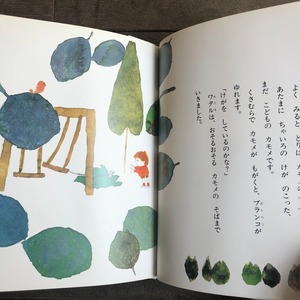 よく みると、とりは カモメの
あたまに ちゃいろの けが のこった、
まだ こどもの カモメです。
くさむらで カモメが もがくと、ブランコが
ゆれます。
「けがを しているのかな?」
ワタルは、おそるおそる カモメの そばまで
いきました。